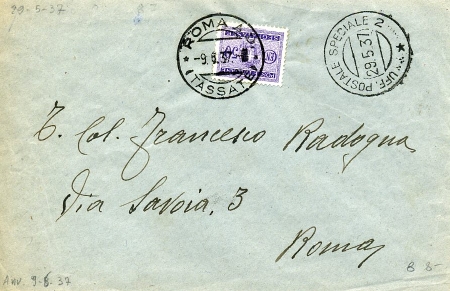 29-5-37
B
ROMA A.D.
-9.6.37-
(TASSATE)
50
UFF. POSTALE SPECIALE 2
29.5.37.
T. Col. Francesco Radogna
Via Savoia, 3
Roma
Arr. 9-6-37
B S-